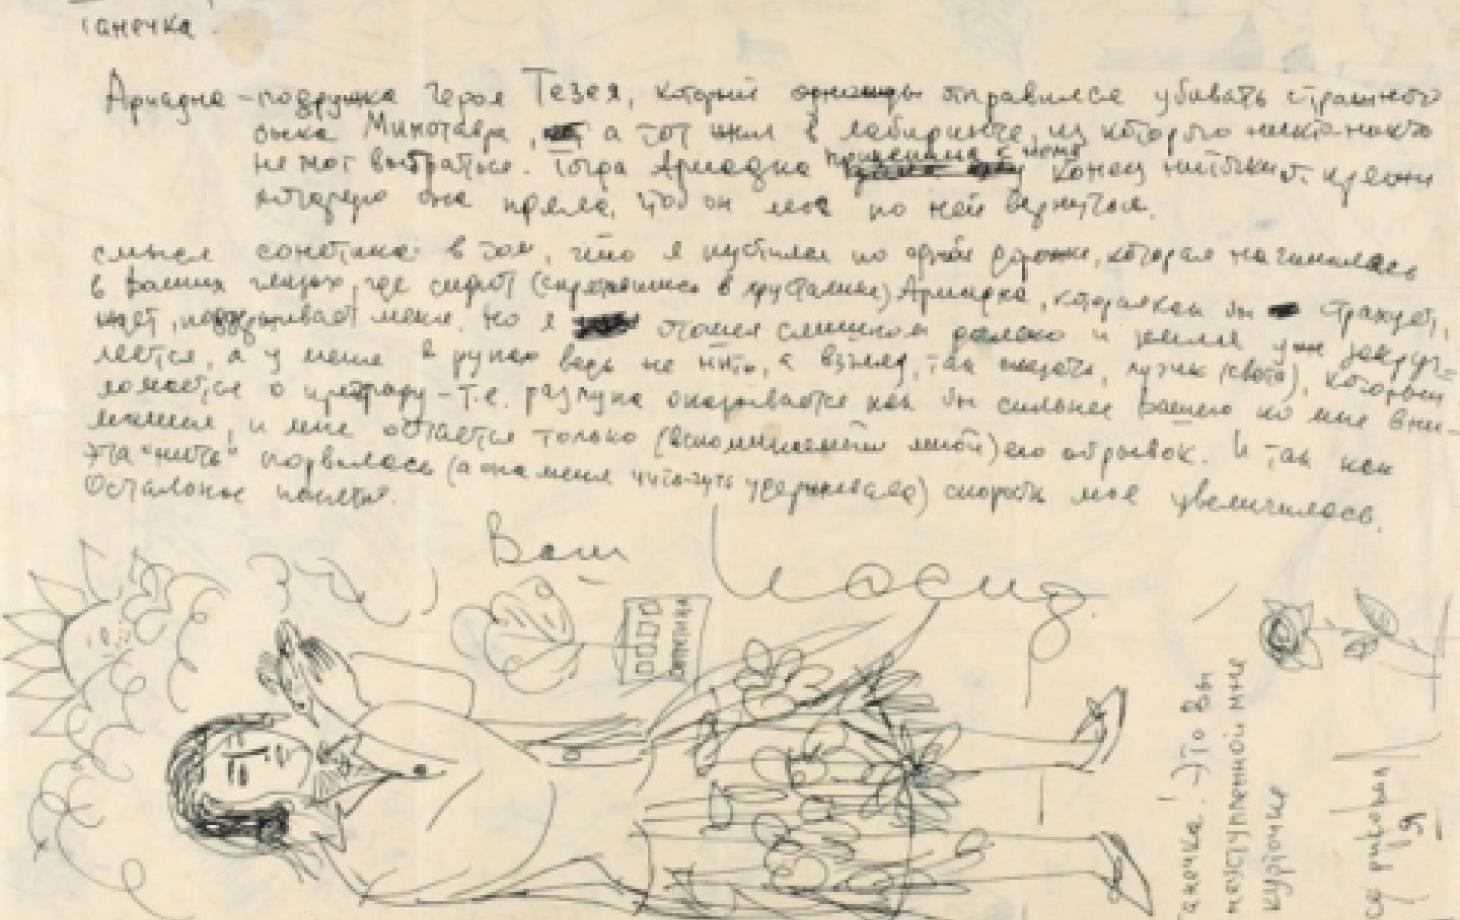 Танечка!
Ариадна – подружка героя Тезея, который однажды отправился убивать страшного
быка Минотавра, а тот жил в лабиринте, из которого никто-никто
не мог выбраться. Тогда Ариадна прицепила к нему конец ниточки,
которую она пряла, чтоб он мог по ней вернуться.
смысл сонетика в том, что я пустился по одной дорожке, которая начиналась
в Ваших глазах, где сидит (спрятавшись в хрусталике) Ариадна, которая как бы страхует,
поддерживает меня. Но я отошел слишком далеко и земля уже закруг-
ляется, а у меня в руках ведь не нить, а взгляд, так сказать, лучик (света), который
ломается о преграду – т.е. разлука оказывается как бы сильнее Вашего ко мне вни-
мания, и мне остается только (вспоминаемый мной) его обрывок. И так как
эта "нить" порвалась (а она меня чуть-чуть удерживала) скорость моя увеличилась.
Остальное понятно.
Ваш Иосиф.
Танечка! Это Вы
в неуступленной мне
курточке
рисовал
Я